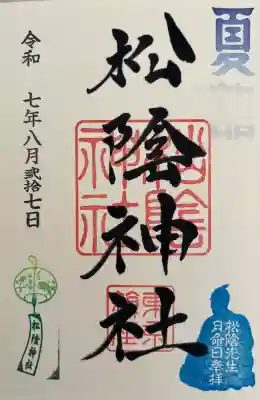 夏詣
松陰神社
令和 七年八月弐拾七日
松陰神社
松陰先生
月命日奉拝